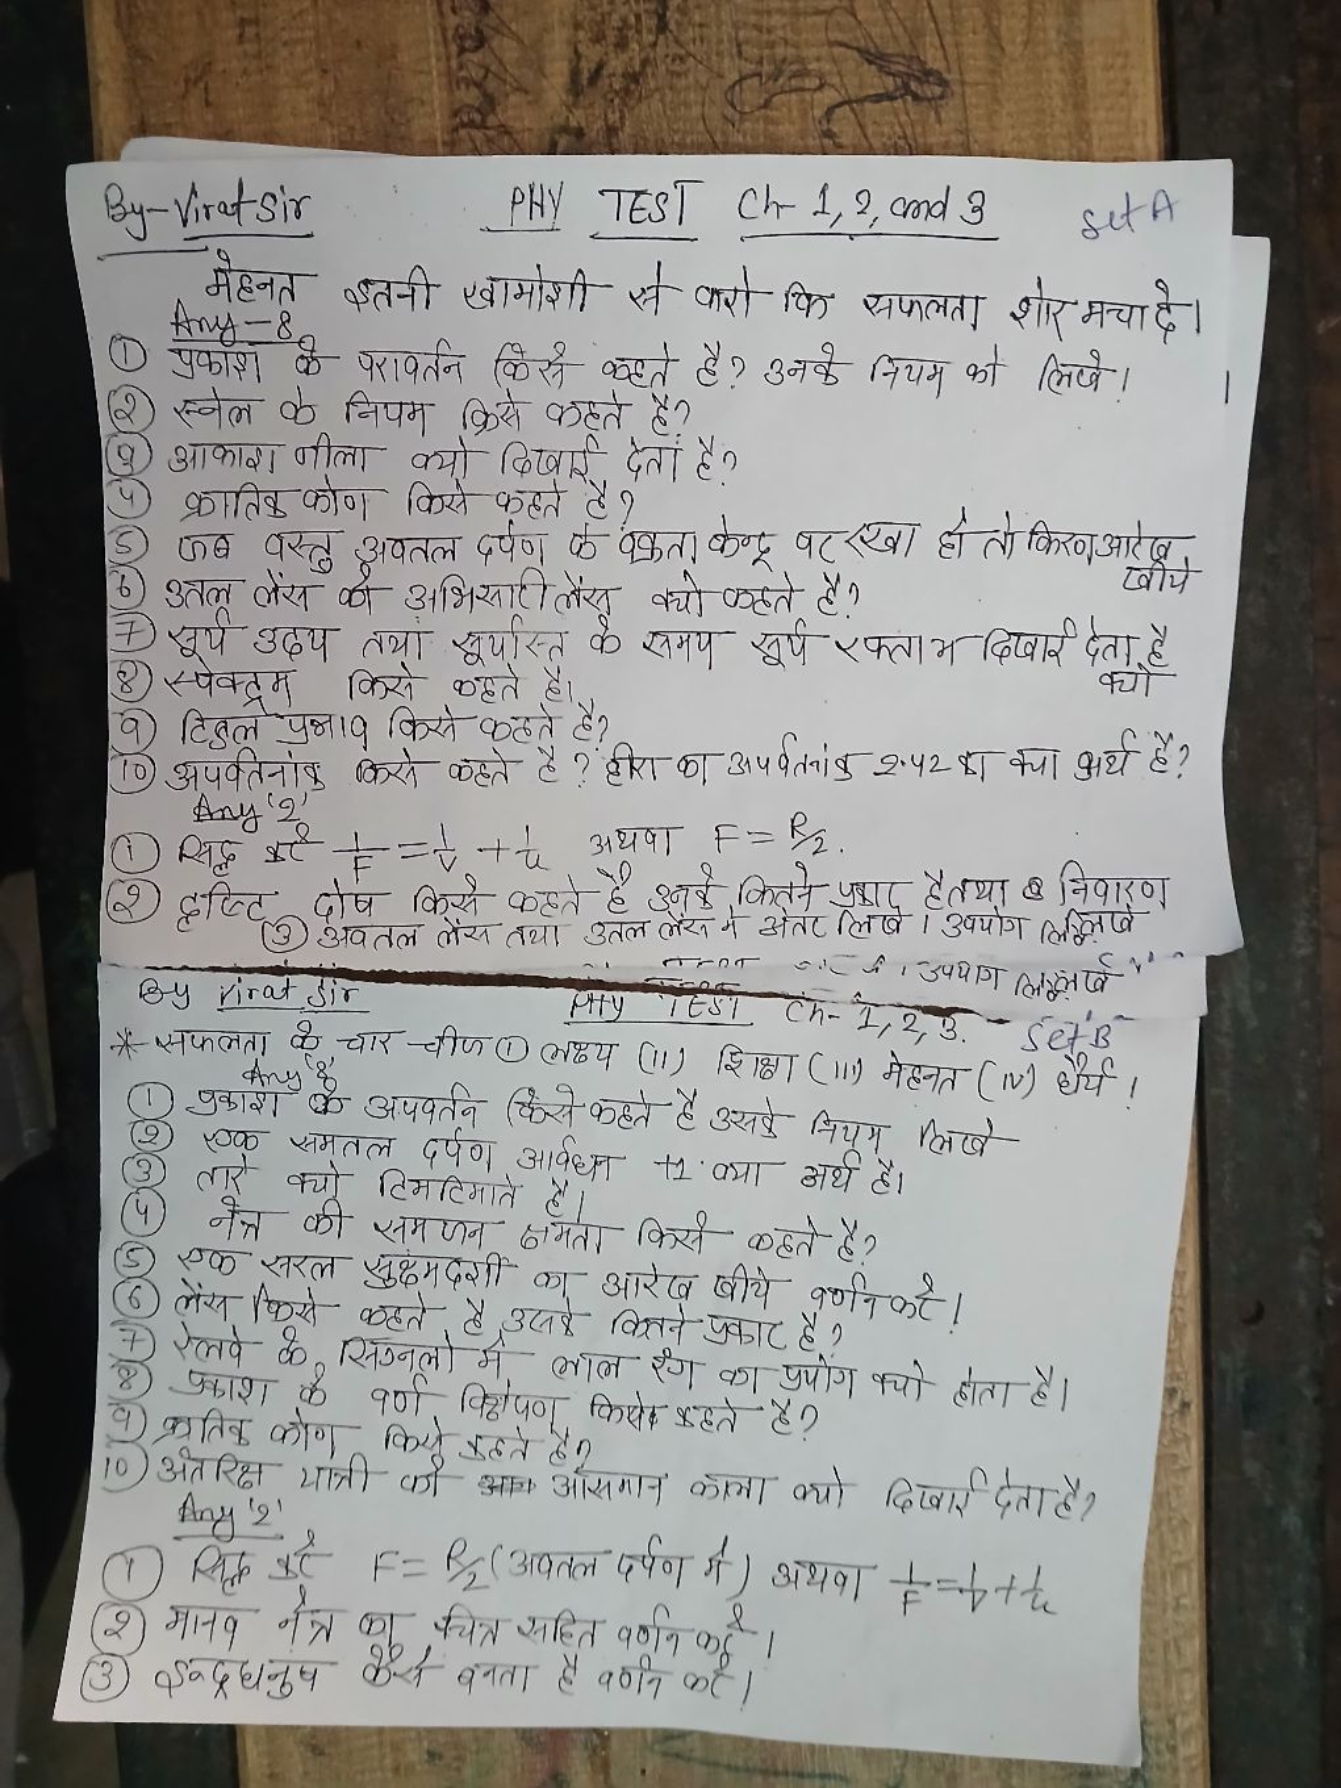 By- Virat Sir PHY TEST Ch- 1, 2, and 3 Set A
मेहनत इतनी खामोशी से करो कि सफलता शोर मचा दे।
Any - 8
① प्रकाश के परावर्तन किसे कहते है? उनके नियम को लिखे।
② स्नेल के नियम किसे कहते है?
③ आकाश नीला क्यो दिखाई देता है?
④ क्रातिक कोण किसे कहते है?
⑤ जब वस्तु अवतल दर्पण के वक्रता केन्द्र पर रखा हो तो किरण आरेख
खीचे
⑥ उतल लेंस को अभिसारी लेंस क्यो कहते है?
⑦ सूर्य उदय तथा सूर्यास्त के समय सूर्य रक्ताभ दिखाई देता है
क्यो
⑧ स्पेक्ट्रम किसे कहते है।
⑨ टिंडल प्रभाव किसे कहते है?
⑩ अपर्वतनांक किसे कहते है? हीरा का अपर्वतनांक 2.42 का क्या अर्थ है?
Any '2'
① सिद्ध करें 1/F = 1/v + 1/u अथवा F = R/2.
② दृष्टि दोष किसे कहते है उनके कितने प्रकार है तथा निवारण
③ अवतल लेंस तथा उतल लेंस मे अंतर लिखे। उपयोग लिखे
उपयोग लिखे
By Virat Sir PHY TEST Ch- 1, 2, 3. Set B
* सफलता के चार चीज ① लक्ष्य (II) शिक्षा (III) मेहनत (IV) धैर्य।
Any '8'
① प्रकाश के अपवर्तन किसे कहते है उसके नियम लिखे
② एक समतल दर्पण आर्वधन +1 क्या अर्थ है।
③ तारे क्यो टिमटिमाते है।
④ नेत्र की समंजन क्षमता किसे कहते है?
⑤ एक सरल सुक्ष्मदर्शी का आरेख खीचे वर्णन करे।
⑥ लेंस किसे कहते है उसके कितने प्रकार है?
⑦ रेलवे के सिग्नलो मे लाल रंग का प्रयोग क्यो होता है।
⑧ प्रकाश के वर्ण विक्षेपण किसे कहते है?
⑨ क्रातिक कोण किसे कहते है?
⑩ अंतरिक्ष यात्री को आसमान काला क्यो दिखाई देता है?
Any '2'
① सिद्ध करें F = R/2 (अवतल दर्पण मे) अथवा 1/F = 1/v + 1/u
② मानव नेत्र का चित्र सहित वर्णन करें।
③ इन्द्रधनुष कैसे बनता है वर्णन करें।